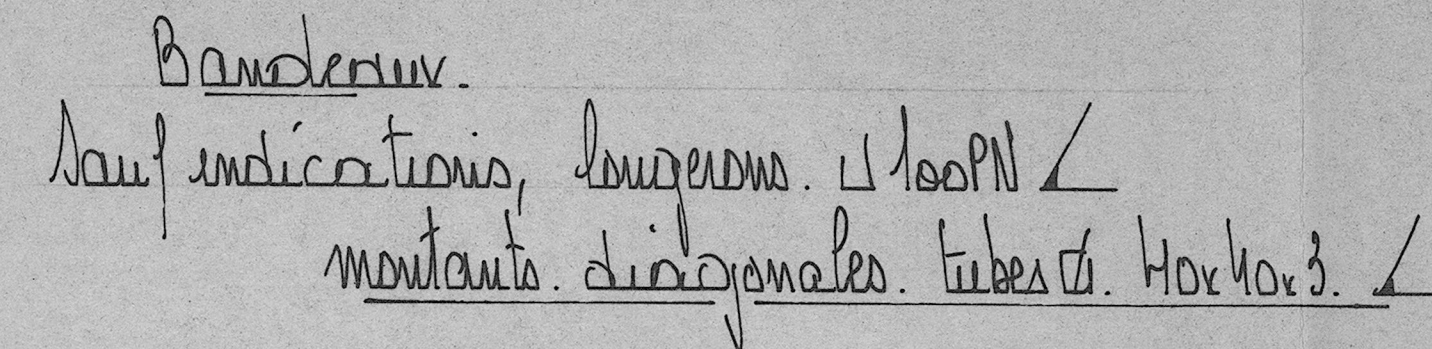 Bandeaux.
Sauf indications, longerons. U 100PN
montants. diagonales. tubes □. 40x40x3.